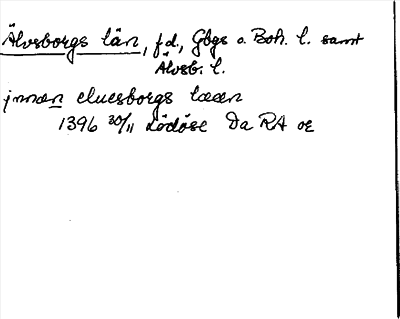 Älvsborgs län, f.d., Gbgs o. Boh. l. samt
Älvsb. l.
jnnan eluesborgs lææn
1396 30/11 Lödöse Da RA oe